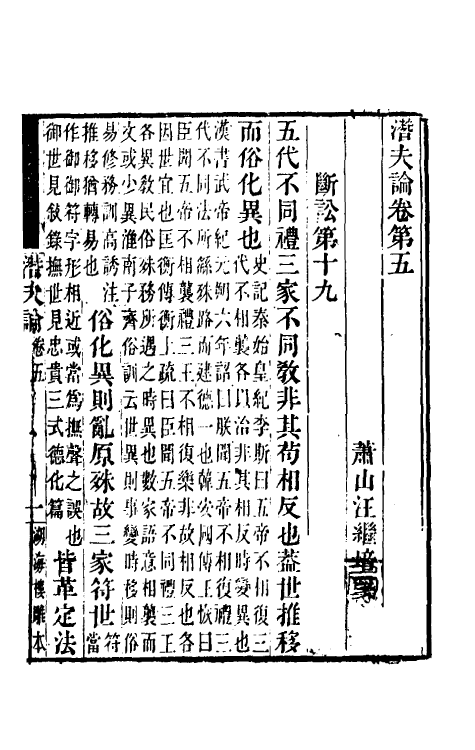 潛夫論卷第五
蕭山汪繼培箋
斷訟第十九
五代不同禮三家不同敎非其苟相反也蓋世推移
而俗化異也
史記秦始皇紀李斯曰五帝不相復三
代不相襲各以治非其相反時變異也
漢書武帝紀元朔六年詔曰朕聞五帝不相復禮三
代不同法所繇殊路而建德一也韓安國傳王恢曰
臣聞五帝不相襲禮三王不相復樂非故相反也各
因世宜也匡衡傳衡上疏曰臣聞五帝不同禮三王
各異敎民俗殊務所遇之時異也數家語意相襲而
文或少異淮南子齊俗訓云世異則事變時移則俗
易修務訓高誘注
推移猶轉易也
俗化異則亂原殊故三家符世
符
當
作御御符字形相近或當為撫聲之誤也
御世見敘錄撫世見忠貴三式德化篇
皆革定法
潛夫論 卷五 一 湖海樓雕本